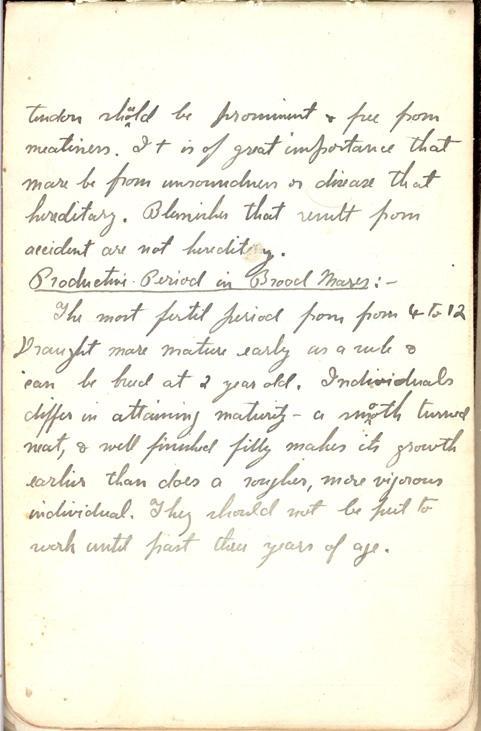 tendon should be prominent & free from
meatiness. It is of great importance that
mare be from unsoundness or disease that
hereditary. Blemishes that result from
accident are not hereditary.
Productive Period in Brood Mares:-
The most fertil period from from 4 to 12
Draught mare mature early as a rule &
can be bred at 2 year old. Individuals
differ in attaining maturity - a smooth turned
neat, & well finished filly makes its growth
earlier than does a rougher, more vigorous
individual. They should not be put to
work until past three years of age.